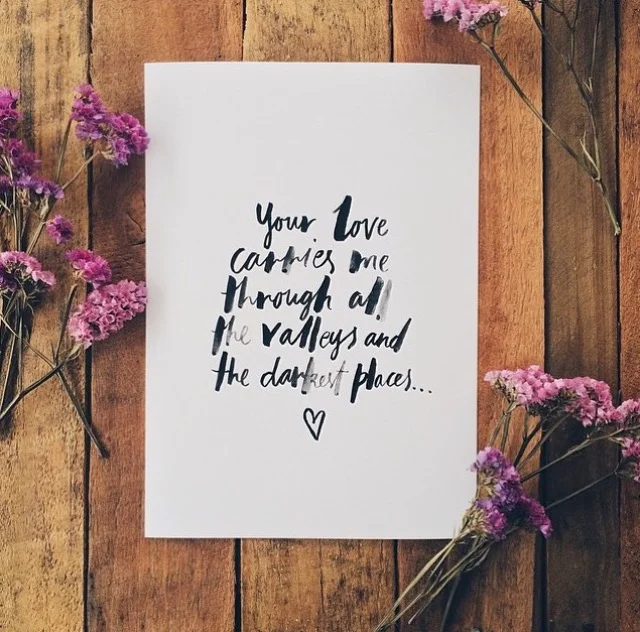 Your Love
carries me
through all
the valleys and
the darkest places...